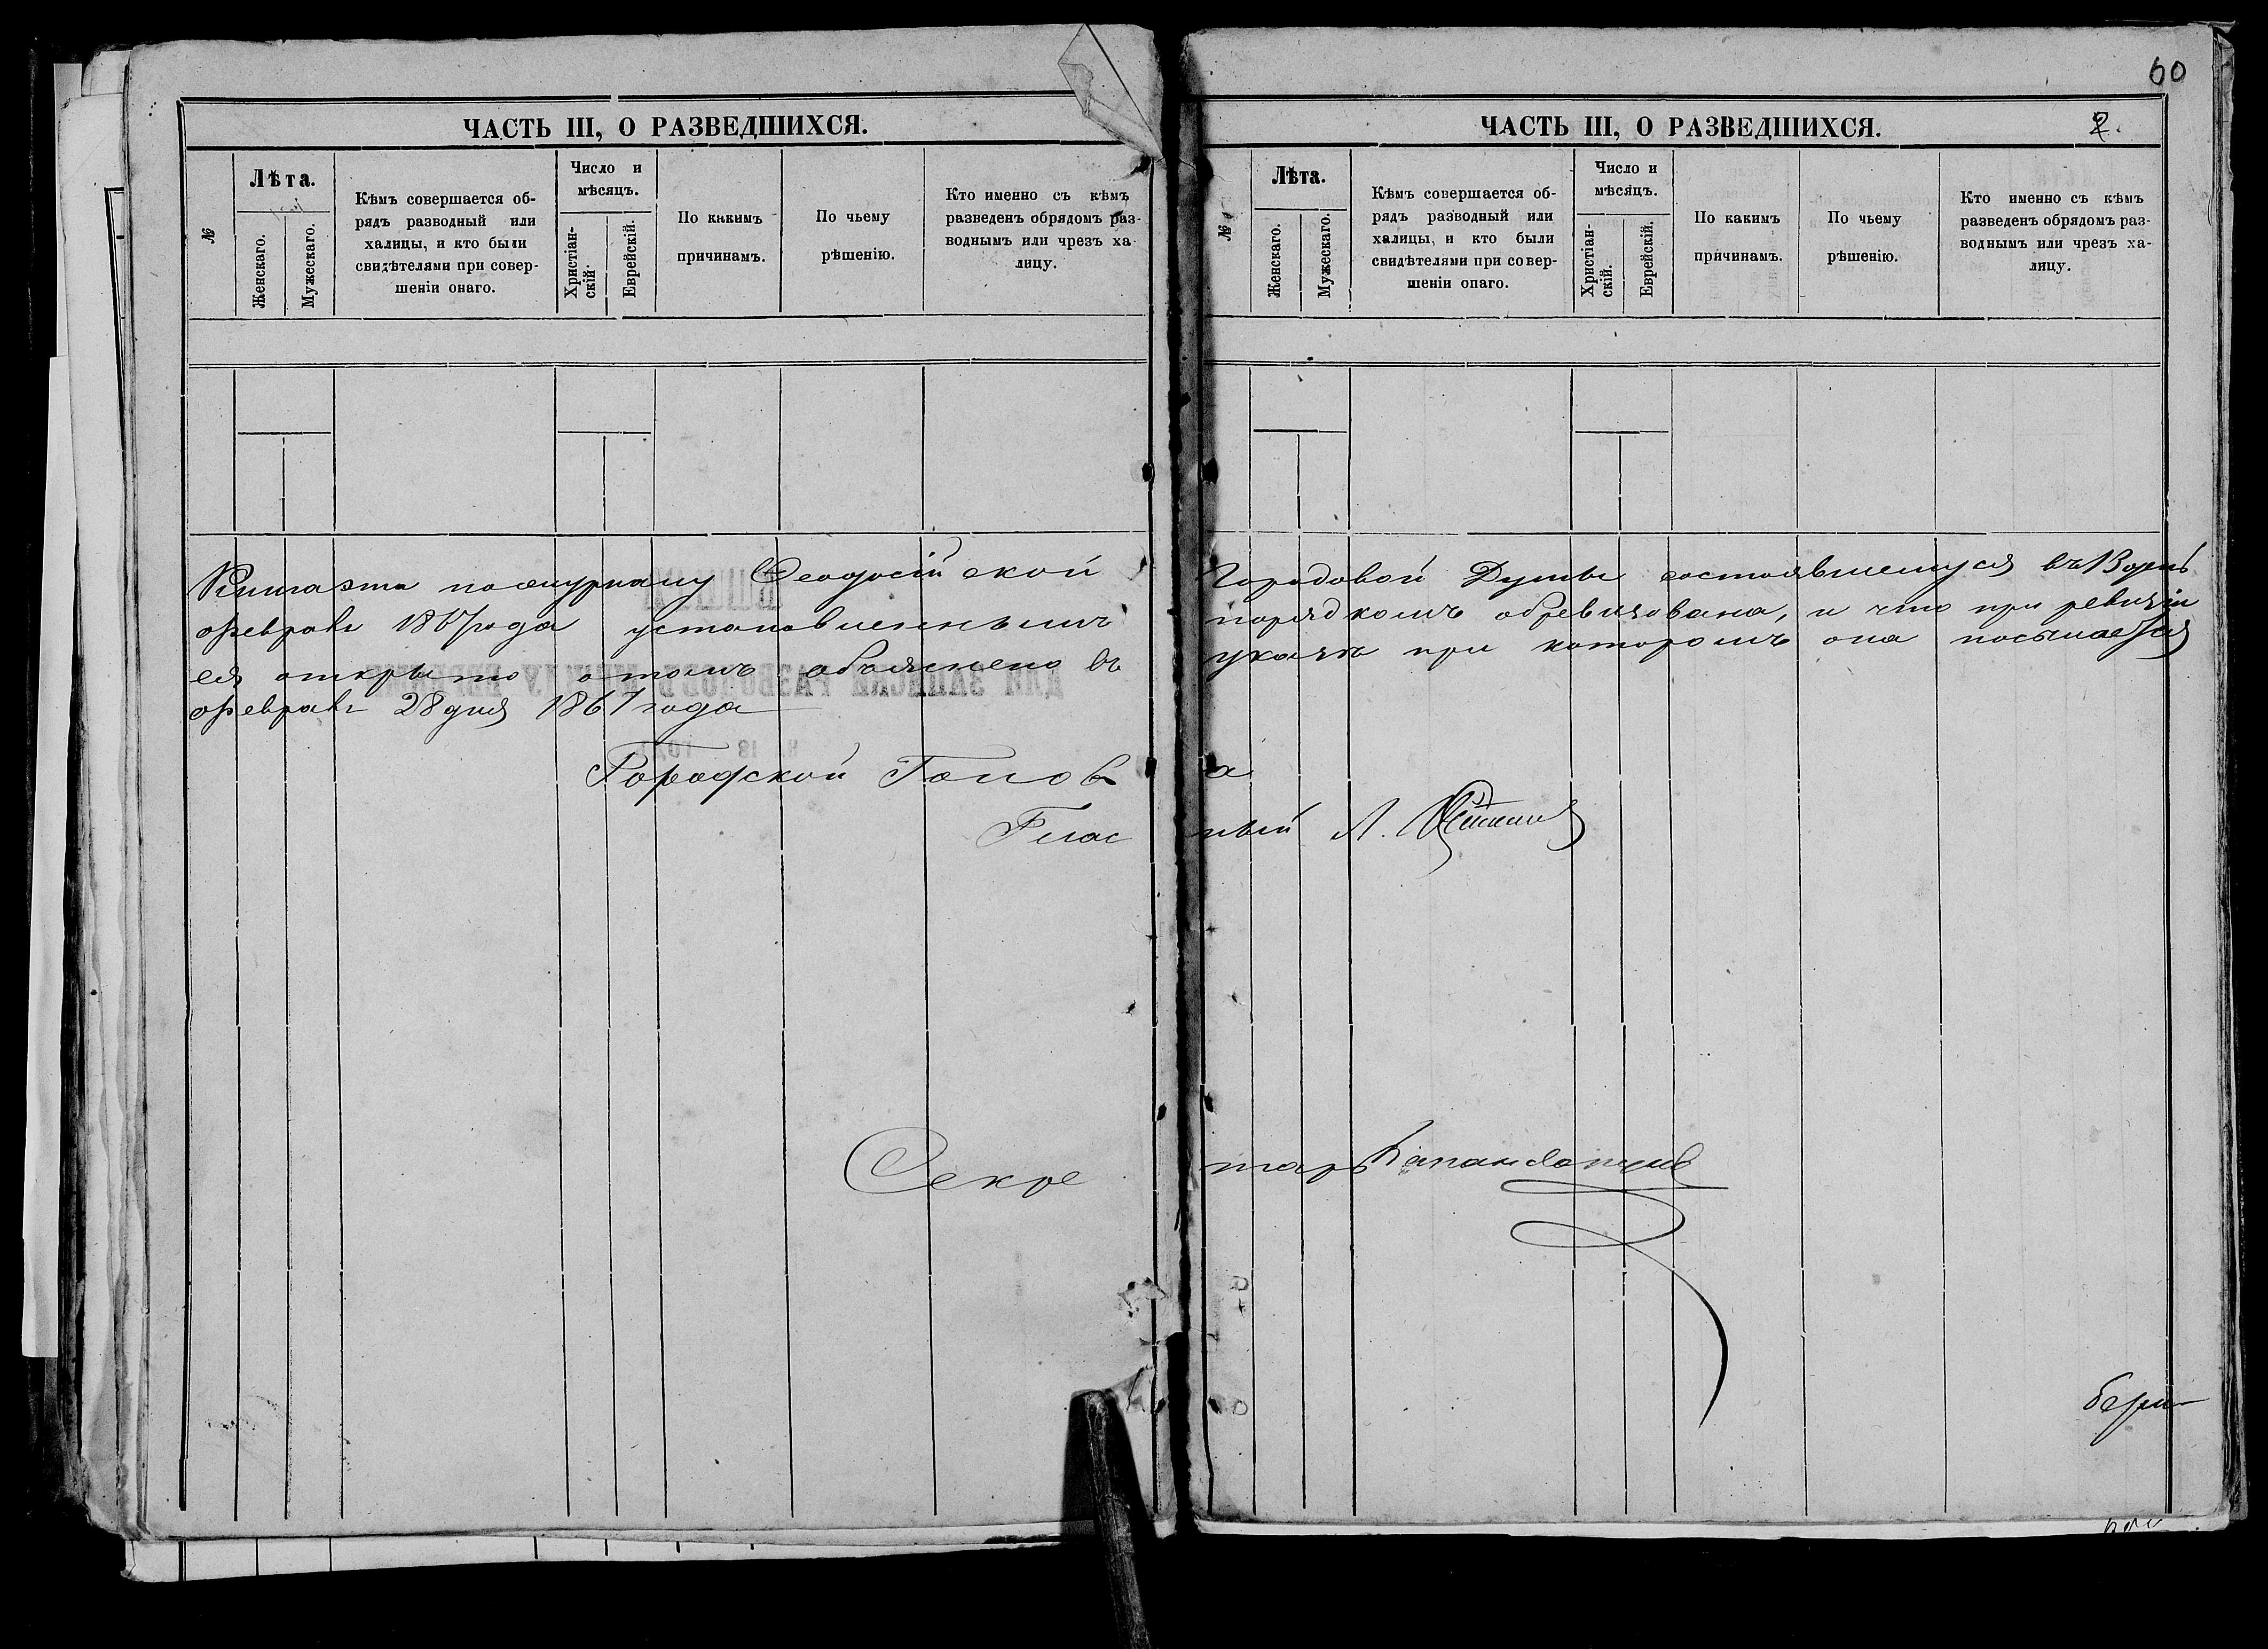 60
ЧАСТЬ III, О РАЗВЕДШИХСЯ.
№
Лѣта.
Женскаго.
Мужескаго.
Кѣмъ совершается об-
рядъ разводный или
халицы, и кто были
свидѣтелями при совер-
шеніи онаго.
Число и
мѣсяцъ.
Христіан-
скій.
Еврейскій.
По какимъ
причинамъ.
По чьему
рѣшенію.
Кто именно съ кѣмъ
разведенъ обрядомъ раз-
воднымъ или чрезъ ха
лицу.
ЧАСТЬ III, О РАЗВЕДШИХСЯ.
2.
№
Лѣта.
Женскаго.
Мужескаго.
Кѣмъ совершается об-
рядъ разводный или
халицы, и кто были
свидѣтелями при совер-
шеніи онаго.
Число и
мѣсяцъ.
Христіан-
скій.
Еврейскій.
По какимъ
причинамъ.
По чьему
рѣшенію.
Кто именно съ кѣмъ
разведенъ обрядомъ раз-
воднымъ или чрезъ ха-
лицу.
Книга эта по журналу Феодосійской Городовой Думы состоявшемуся въ
февраля 1867 года установленнымъ порядкомъ обревизована, и что при ревизіи
ея открыто о томъ объяснено въ указѣ при которомъ она посылается
февраля 28 дня 1867 года
Городской Голова
Гласный А.
Секретарь